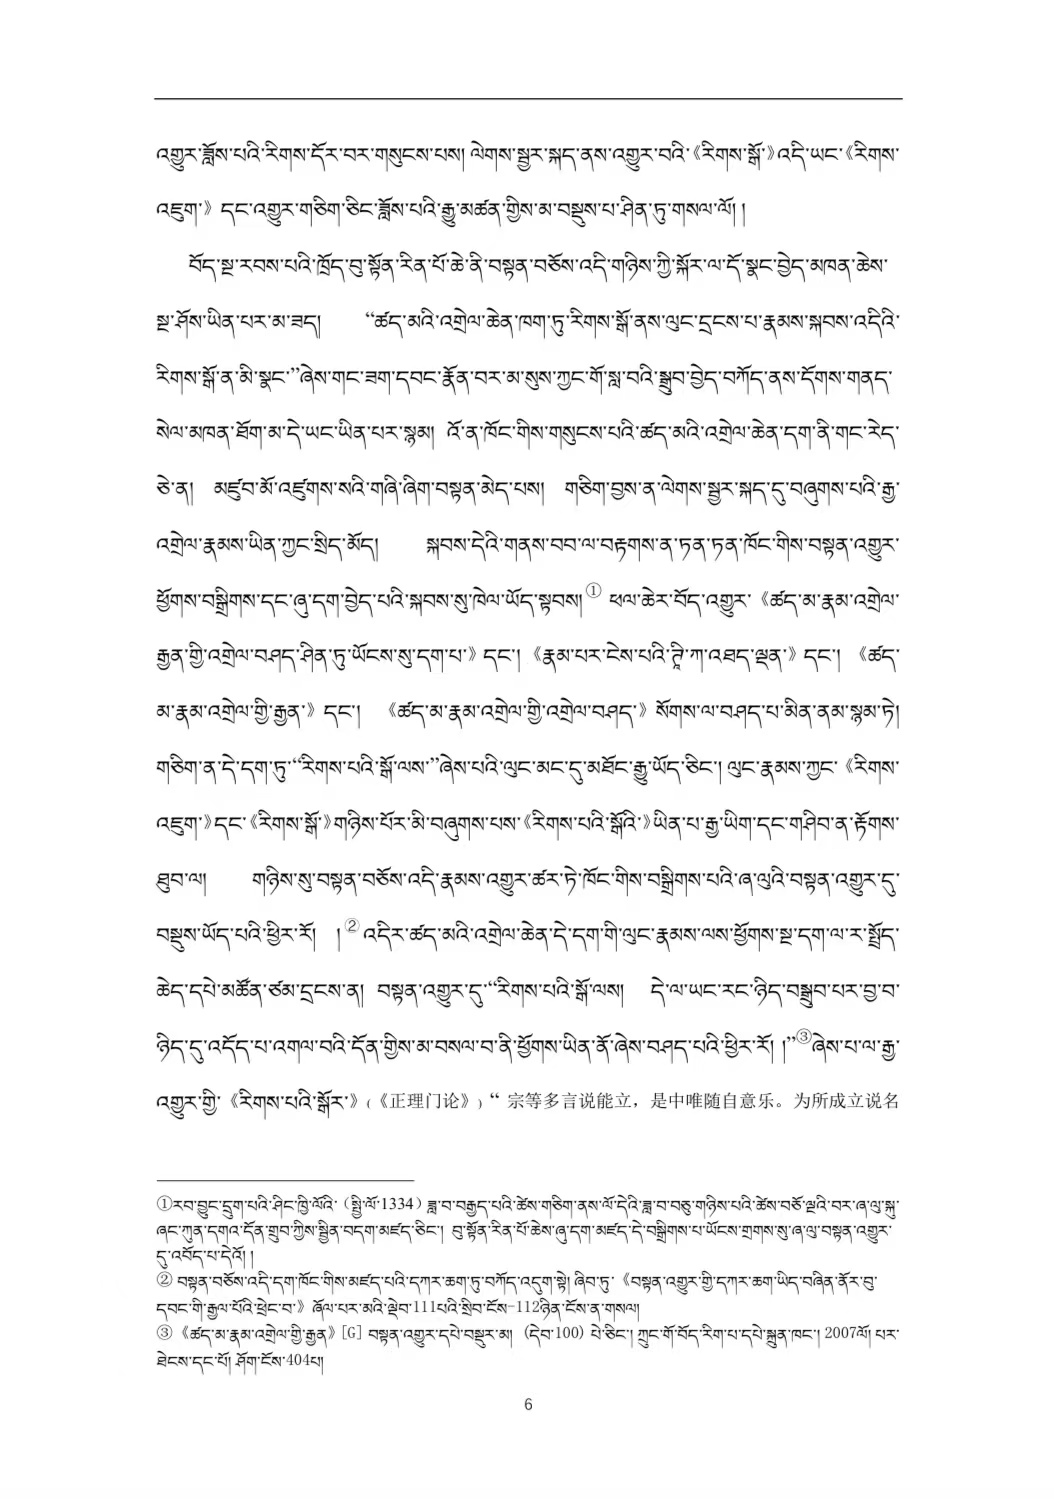 འགྱུར་ཟློས་པའི་རིགས་དོར་བར་གསུངས་པས། ལེགས་སྦྱར་སྐད་ནས་འགྱུར་བའི་《རིགས་སྒོ་》འདི་ཡང་《རིགས་
འཇུག་》དང་འགྱུར་གཅིག་ཅིང་ཟློས་པའི་རྒྱུ་མཚན་གྱིས་མ་བསྡུས་པ་ཤིན་ཏུ་གསལ་ལོ། །
བོད་སྔ་རབས་པའི་ཁྲོད་བུ་སྟོན་རིན་པོ་ཆེ་ནི་བསྟན་བཅོས་འདི་གཉིས་ཀྱི་སྐོར་ལ་དོ་སྣང་བྱེད་མཁན་ཆེས་
སྔ་ཤོས་ཡིན་པར་མ་ཟད། “ཚད་མའི་འགྲེལ་ཆེན་ཁག་ཏུ་རིགས་སྒོ་ནས་ལུང་དྲངས་པ་རྣམས་སྐབས་འདིའི་
རིགས་སྒོ་ན་མི་སྣང་”ཞེས་གང་ཟག་དབང་རྣོན་བར་མ་སུས་ཀྱང་གོ་སླ་བའི་སྒྲུབ་བྱེད་བཀོད་ནས་དོགས་གནད་
སེལ་མཁན་ཐོག་མ་དེ་ཡང་ཡིན་པར་སྙམ། འོ་ན་ཁོང་གིས་གསུངས་པའི་ཚད་མའི་འགྲེལ་ཆེན་དག་ནི་གང་རེད་
ཅེ་ན། མཛུབ་མོ་འཛུགས་སའི་གཞི་ཞིག་བསྟན་མེད་པས། གཅིག་བྱས་ན་ལེགས་སྦྱར་སྐད་དུ་བཞུགས་པའི་རྒྱ་
འགྲེལ་རྣམས་ཡིན་ཀྱང་སྲིད་མོད། སྐབས་དེའི་གནས་བབ་ལ་བརྟགས་ན་ཏན་ཏན་ཁོང་གིས་བསྟན་འགྱུར་
ཕྱོགས་བསྒྲིགས་དང་ཞུ་དག་བྱེད་པའི་སྐབས་སུ་ཁེལ་ཡོད་སྟབས།① ཕལ་ཆེར་བོད་འགྱུར་《ཚད་མ་རྣམ་འགྲེལ་
རྒྱན་གྱི་འགྲེལ་བཤད་ཤིན་ཏུ་ཡོངས་སུ་དག་པ་》དང་། 《རྣམ་པར་ངེས་པའི་ཊཱི་ཀ་འཐད་ལྡན་》དང་། 《ཚད་
མ་རྣམ་འགྲེལ་གྱི་རྒྱན་》དང་། 《ཚད་མ་རྣམ་འགྲེལ་གྱི་འགྲེལ་བཤད་》སོགས་ལ་བཤད་པ་མིན་ནམ་སྙམ་ཏེ།
གཅིག་ན་དེ་དག་ཏུ་“རིགས་པའི་སྒོ་ལས་”ཞེས་པའི་ལུང་མང་དུ་མཐོང་རྒྱུ་ཡོད་ཅིང་། ལུང་རྣམས་ཀྱང་《རིགས་
འཇུག་》དང་《རིགས་སྒོ་》གཉིས་པོར་མི་བཞུགས་པས་《རིགས་པའི་སྒོའི་》ཡིན་པ་རྒྱ་ཡིག་དང་གཤིབ་ན་རྟོགས་
ཐུབ་ལ། གཉིས་སུ་བསྟན་བཅོས་འདི་རྣམས་འགྱུར་ཚར་ཏེ་ཁོང་གིས་བསྒྲིགས་པའི་ཞ་ལུའི་བསྟན་འགྱུར་དུ་
བསྡུས་ཡོད་པའི་ཕྱིར་རོ། །② འདིར་ཚད་མའི་འགྲེལ་ཆེན་དེ་དག་གི་ལུང་རྣམས་ལས་ཕྱོགས་སྔ་དག་ལ་ར་སྤྲོད་
ཆེད་དཔེ་མཚོན་ཙམ་དྲངས་ན། བསྟན་འགྱུར་དུ་“རིགས་པའི་སྒོ་ལས། དེ་ལ་ཡང་རང་ཉིད་བསྒྲུབ་པར་བྱ་བ་
ཉིད་དུ་འདོད་པ་འགལ་བའི་དོན་གྱིས་མ་བསལ་བ་ནི་ཕྱོགས་ཡིན་ནོ་ཞེས་བཤད་པའི་ཕྱིར་རོ། །”③ཞེས་པ་ལ་རྒྱ་
འགྱུར་གྱི་《རིགས་པའི་སྒོར་》(《正理门论》)“ 宗等多言说能立，是中唯随自意乐。为所成立说名
①རབ་བྱུང་དྲུག་པའི་ཤིང་ཁྱི་ལོའི་（སྤྱི་ལོ་1334）ཟླ་བ་བརྒྱད་པའི་ཚེས་གཅིག་ནས་ལོ་དེའི་ཟླ་བ་བཅུ་གཉིས་པའི་ཚེས་བཅོ་ལྔའི་བར་ཞ་ལུ་སྐུ་
ཞང་ཀུན་དགའ་དོན་གྲུབ་ཀྱིས་སྦྱིན་བདག་མཛད་ཅིང་། བུ་སྟོན་རིན་པོ་ཆེས་ཞུ་དག་མཛད་དེ་བསྒྲིགས་པ་ཡོངས་གྲགས་སུ་ཞ་ལུ་བསྟན་འགྱུར་
དུ་འབོད་པ་དེའོ། །
② བསྟན་བཅོས་འདི་དག་ཁོང་གིས་མཛད་པའི་དཀར་ཆག་ཏུ་བཀོད་འདུག་སྟེ། ཞིབ་ཏུ་《བསྟན་འགྱུར་གྱི་དཀར་ཆག་ཡིད་བཞིན་ནོར་བུ་
དབང་གི་རྒྱལ་པོའི་ཕྲེང་བ་》ཞོལ་པར་མའི་ལྡེབ་111པའི་སྲིབ་ངོས-112ཉིན་ངོས་ན་གསལ།
③ 《ཚད་མ་རྣམ་འགྲེལ་གྱི་རྒྱན》[G] བསྟན་འགྱུར་དཔེ་བསྡུར་མ། (དེབ་100) པེ་ཅིང་། ཀྲུང་གོ་བོད་རིག་པ་དཔེ་སྐྲུན་ཁང་། 2007ལོ། པར་
ཐེངས་དང་པོ། ཤོག་ངོས་404པ།
6